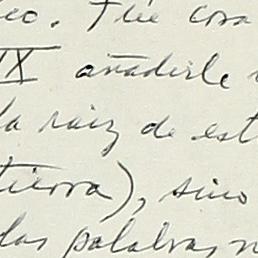 co. Fué cosa
IX añaderle
la raiz de est
tierra), sino
las palabras n